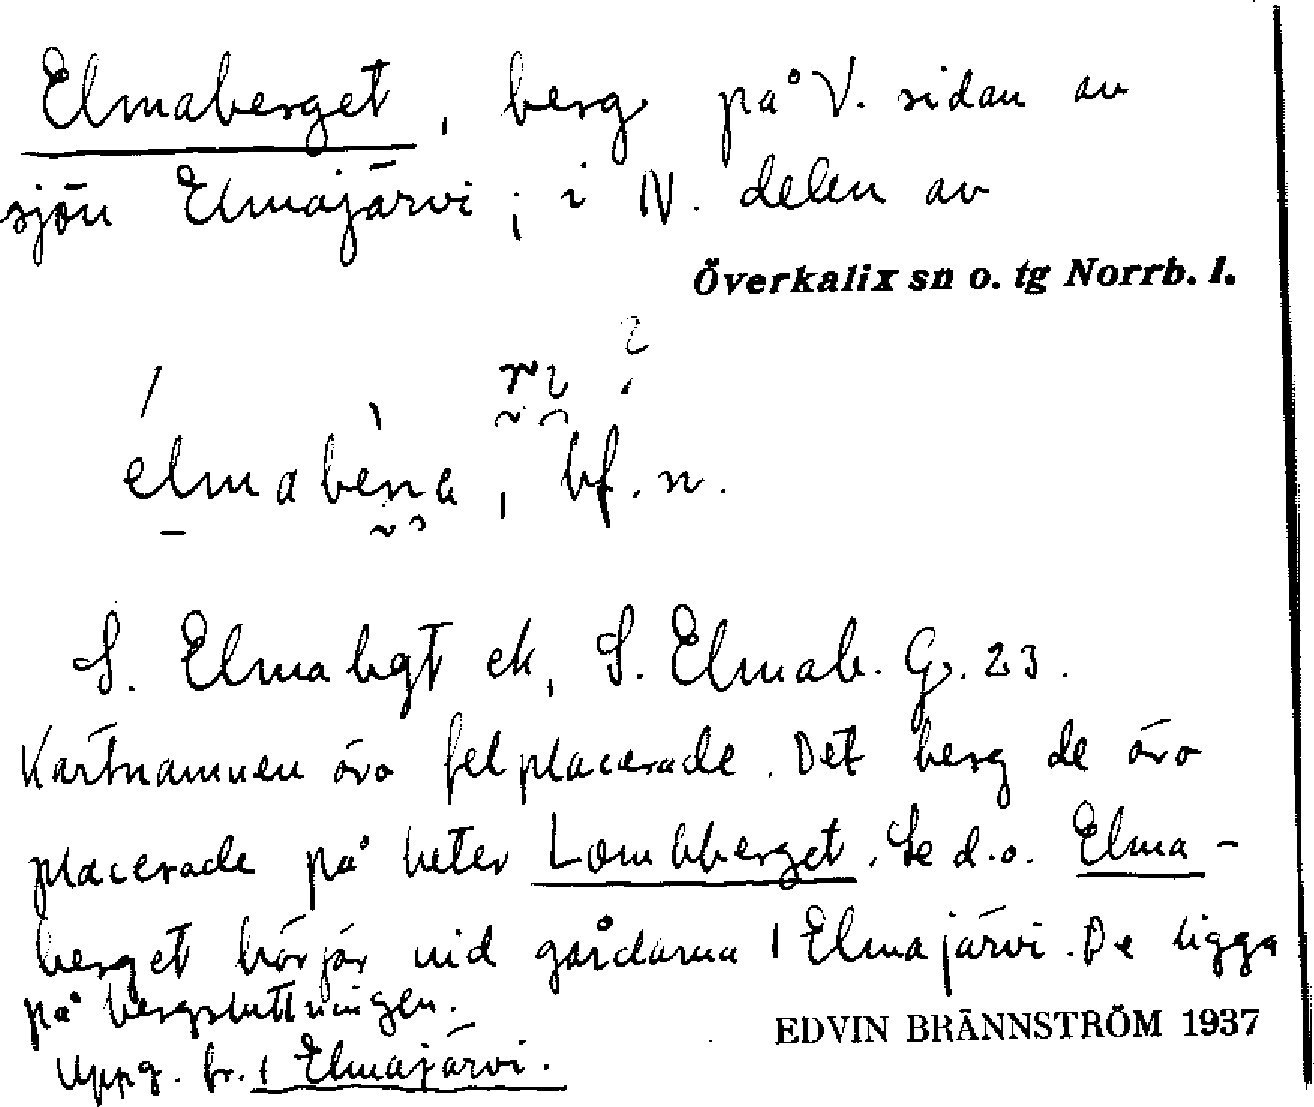 Elmaberget, berg på V. sidan av
sjön Elmajärvi; i N. delen av
Överkalix sn o. tg Norrb. l.
bf. n.
S. Elmabgt ek, S. Elmab. G. 23.
Kartnamnen äro felplacerade. Det berg de äro
placerade på heter Lombberget. Se d.o. Elma-
berget börjar vid gårdarna i Elmajärvi. De ligga
på bergsluttningen.
Uppg. fr. i Elmajärvi.
EDVIN BRÄNNSTRÖM 1937